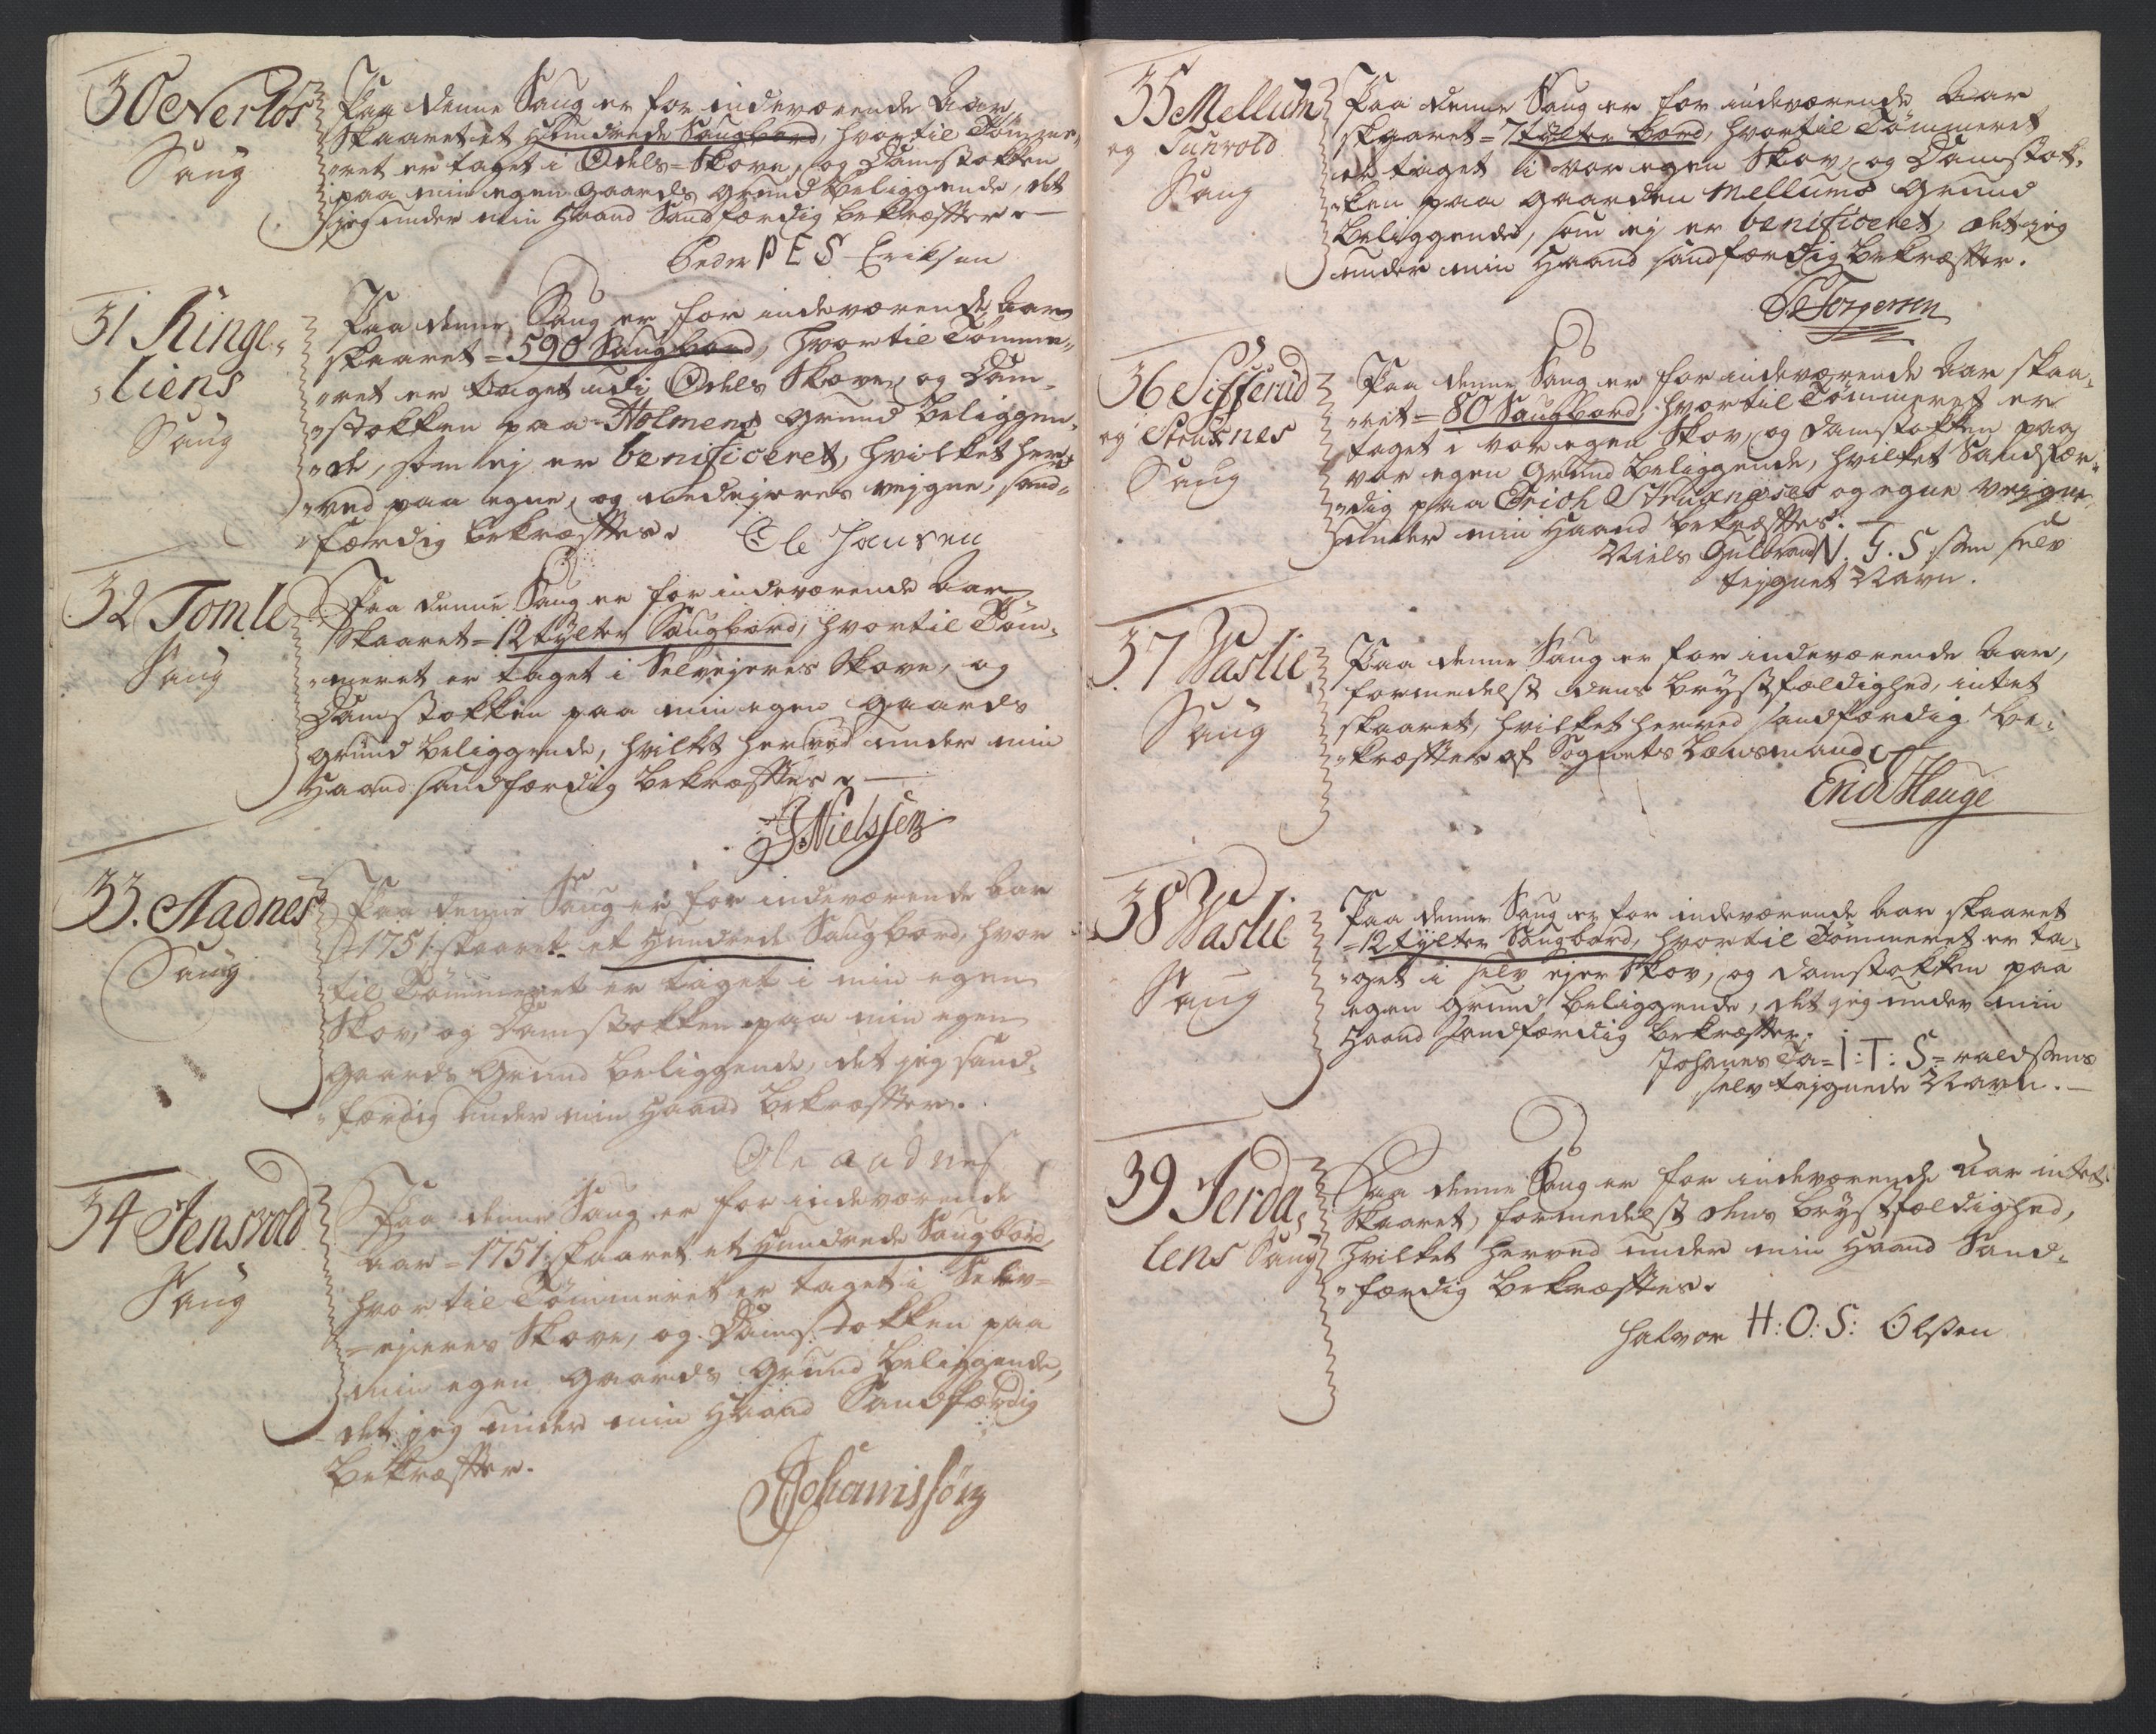 30 Nerløs
Saug
Paa denne Saug er for indeværende Aar
skaaret et Hundrede Saugbord, hvortil Tømme-
ret er taget i Odels-Skove, og Damstokken
paa min egen Gaards Grund beliggende, det
jeg under min Haand Sandfærdig bekræfter.
Peder PES Eriksen
31 Ringe-
liens
Saug
Paa denne Saug er for indeværende Aar
skaaret = 590 Saugbord, hvortil Tømme-
ret er taget udi Odels Skove, og Dam-
stokken paa Holmens Grund beliggen-
de, som ej er benificeret, hvilket her-
ved paa egne, og medejeres vejgne, sand-
færdig bekræftes.
Ole Jansen
32 Tomle
Saug
Paa denne Saug er for indeværende Aar
skaaret = 12 tylter Saugbord, hvortil Tøm-
meret er taget i Selvejeres Skove, og
Damstokken paa min egen Gaards
Grund beliggende, hvilket herved under min
Haand sandfærdig bekræftes.
Nielssen
33. Aadnes
Saug
Paa denne Saug er for indeværende Aar
1751 skaaret et Hundrede Saugbord, hvor
til Tømmeret er taget i min egen
Skov, og Damstokken paa min egen
Gaards Grund beliggende, det jeg sand-
færdig under min Haand bekræfter.
Ole aadnes
34 Jensvold
Saug
Paa denne Saug er for indeværende
Aar = 1751 skaaret et Hundrede Saugbord,
hvortil Tømmeret er taget i Selv-
ejeres Skove, og Damstokken paa
min egen Gaards Grund beliggende,
det jeg under min Haand Sandfærdig
bekræfter.
Johannissøn
35 Mellum
og Sunvold
Saug
Paa denne Saug er for indeværende Aar
skaaret = 7 tylter bord, hvortil Tømmeret
er taget i vor egen Skov, og Damstok-
ken paa Gaarden Mellums Grund
beliggende, som ej er benificeret, det jeg
under min Haand sandfærdig bekræfter.
Torgersen
36 Sifferud
og Struxnes
Saug
Paa denne Saug er for indeværende Aar skaa-
ret = 80 Saugbord, hvortil Tømmeret er
taget i vor egen Skov, og damstokken paa
vor egen Grund beliggende, hvilket Sandfær-
dig paa Erich Struxneses og egne vejgne
under min Haand bekræftes.
Niels Gulbrand N. G. S. ssen selv
tejgnet Navn.
37 Vaslie
Saug
Paa denne Saug er for indeværende Aar,
formedelst dens brystfældighed, intet
skaaret, hvilket herved sandfærdig be-
kræftes af Sognets Lænsmand
End Hauge
38 Vaslie
Saug
Paa denne Saug er for indeværende Aar skaaret
= 12 tylter Saugbord, hvortil Tømmeret er ta-
get i selv ejer Skov, og damstokken paa
egen Grund beliggende, det jeg under min
Haand sandfærdig bekræfter.
Johanes Ta= I: T: S= raldsens
selv tejgnede Navn.
39 Jerda-
lens Saug
Paa denne Saug er for indeværende Aar intet
Skaaret, formedelst dens brystfældighed,
hvilket herved under min Haand Sand-
færdig bekræftes.
Halvor H: O: S: Olsen